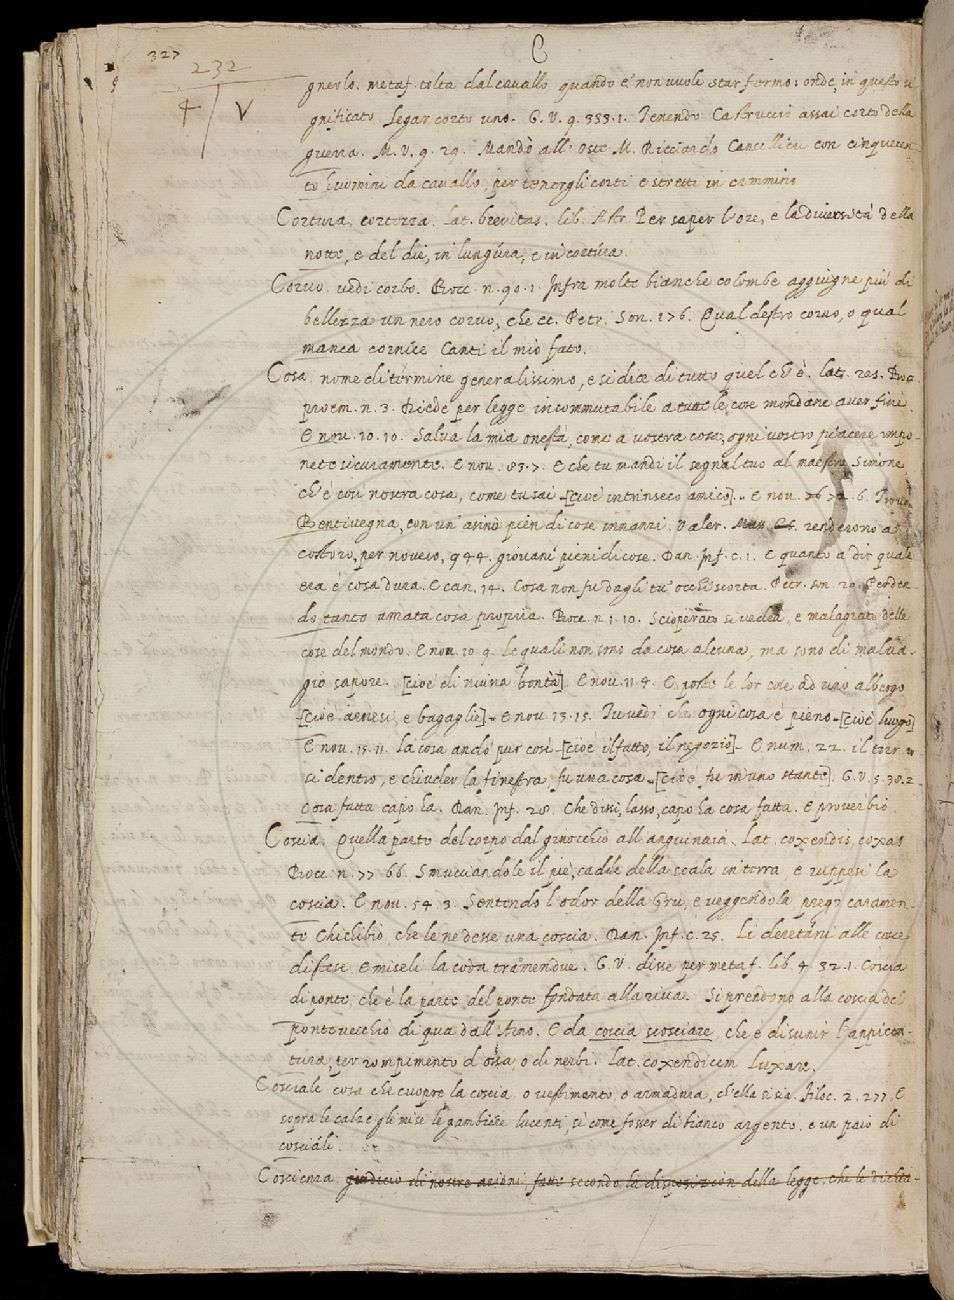 327
232
4 V
C
gnerlo. metaf. tolta dal cavallo quando e' non vuole star fermo: onde, in questo si
gnificato Legar corto uno. G. V. 9. 333. 1. Tenendo Castruccio assai corto della
guerra. M. V. 9. 29. Mandò all'Oste M. Ricciardo Cancellieri con cinquecen
to huomini da cavallo, per tenergli corti e stretti in cammino
Cortura, cortezza. lat. brevitas. lib. Astr. Per saper l'ore, e la diversità della
notte, e del die, in lungura, e in cortura.
Corvo. vedi corbo. Bocc. n. 90. 1. Infra molte bianche colombe aggiugne più di
bellezza un nero corvo, che ec. Petr. Son. 176. Qual destro corvo, o qual
manca cornice Canti il mio fato.
Cosa. nome di termine generalissimo, e si dice di tutto quel ch'è. lat. res. Boc.
proem. n. 3. Diede per legge incommutabile a tutte le cose mondane aver fine.
E nov. 10. 10. Salva la mia onestà, come a vostra cosa, ogni vostro piacere impo-
nete sicuramente. E nov. 83. 7. E che tu mandi il segnal tuo al maestro Simone,
ch'è così nostra cosa, come tu sai [cioè intrinseco amico]. E nov. 72. 6. Trovò
Bentivegna, con un'asino pien di cose innanzi. Valer. renderono a
costoro, per novero, 944. giovani pieni di cose. Dan. Inf. c. 1. E quanto a dir qual
era è cosa dura. E can. 14. Cosa non fu dagli tu' occhi scorta. Petr. son. 20. Perden-
do tanto amata cosa propria. Bocc. n. 1. 10. Scioperato si vedea, e malagiato delle
cose del mondo. E nov. 10. 9. le quali non sono da cosa alcuna, ma sono di malva-
gio sapore. [cioè di niuna bontà]. E nov. 11. 4. E poste le lor cose ad uno albergo
[cioè arnesi, e bagaglie]. E nov. 13. 15. Tu vedi che ogni cosa è pieno [cioè luogo]
E nov. 15. 11. la cosa andò pur così [cioè il fatto, il negozio]. E num. 22. il tirar
si dentro, e chiuder la finestra, fu una cosa [cioè fu in uno stante]. G. V. 5. 38. 2
Cosa fatta capo ha. Dan. Inf. 28. Che dissi, lasso, capo ha cosa fatta. E proverbio
Coscia. Quella parte del corpo dal ginocchio all'anguinaia. Lat. coxendis, coxas
Bocc. n. 77. 66. Smucciandole il piè, cadde della scala in terra, e ruppesi la
coscia. E nov. 54. 3. Sentendo l'odor della Gru, e veggendola pregò caramen-
te Chichibio che le ne desse una coscia. Dan. Inf. c. 25. Li deretani alle cosce
distese. E miseli la coda tramendue. G. V. disse per metaf. lib. 4. 32. 1. Coscia
di ponte, che è la parte del ponte fondata alla riva. Si prendono alla coscia del
pontevecchio di qua dall'Arno. E da coscia scosciare, che è disunir l'appicca-
tura, per rompimento d'ossa, o di nerbi. Lat. coxendicem luxare.
Cosciale. cosa che cuopre la coscia, o vestimento, o armadura, ch'ella si sia. Filoc. 2. 277. E
sopra le calze gli mise le gambiere lucenti, sì come fosser di bianco argento, e un paio di
cosciali.
Coscienza. giudicio di nostre azioni, fatto secondo la disposizion della legge, che le dichia-